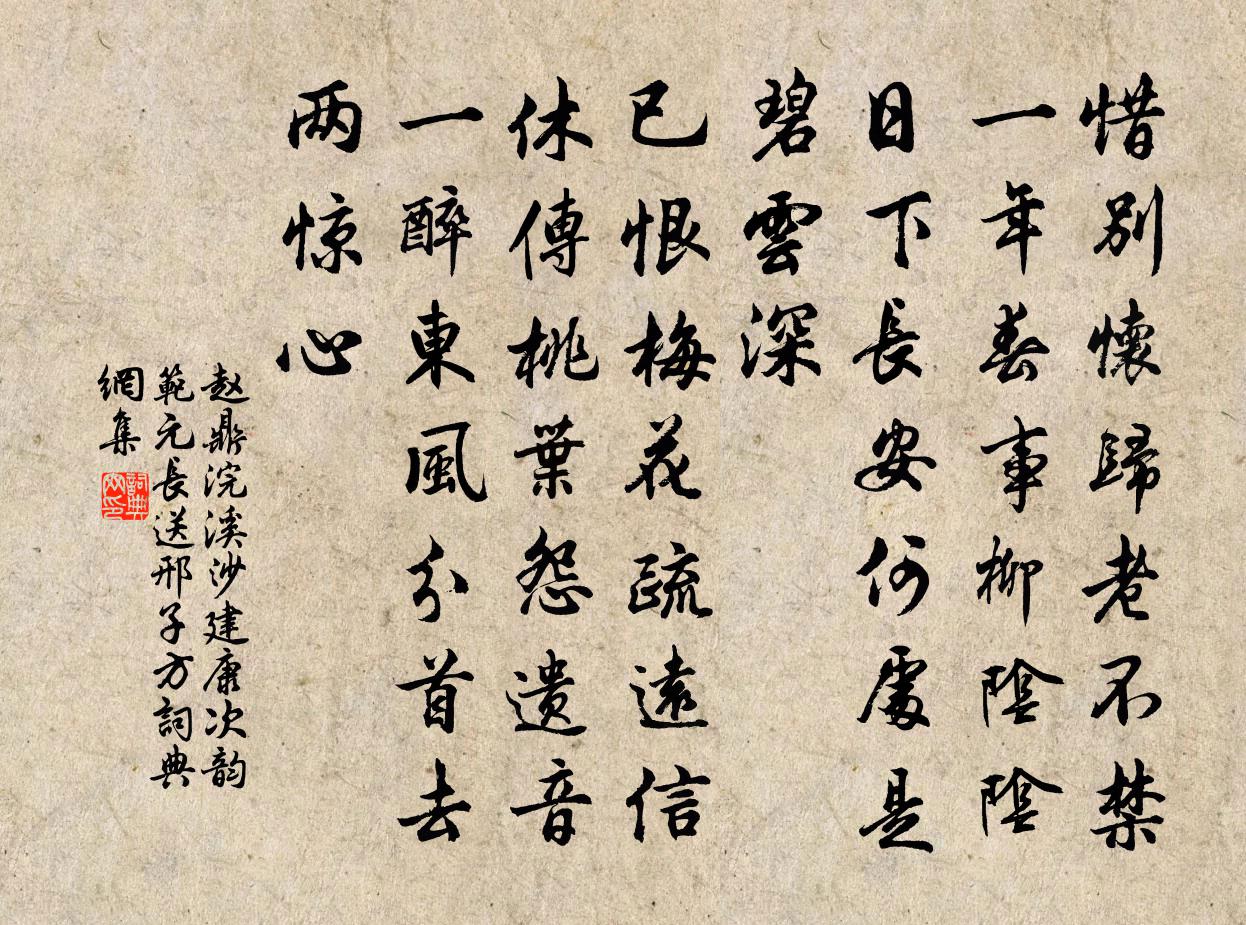 惜别懷歸老不禁
一年春事柳陰陰
日下長安何處是
碧雲深
已恨梅花疏遠信
休傳桃葉怨遺音
一醉東風分首去
两惊心
赵鼎浣溪沙建康次韵
範元長送邢子方詞典
網集
詞典
网印